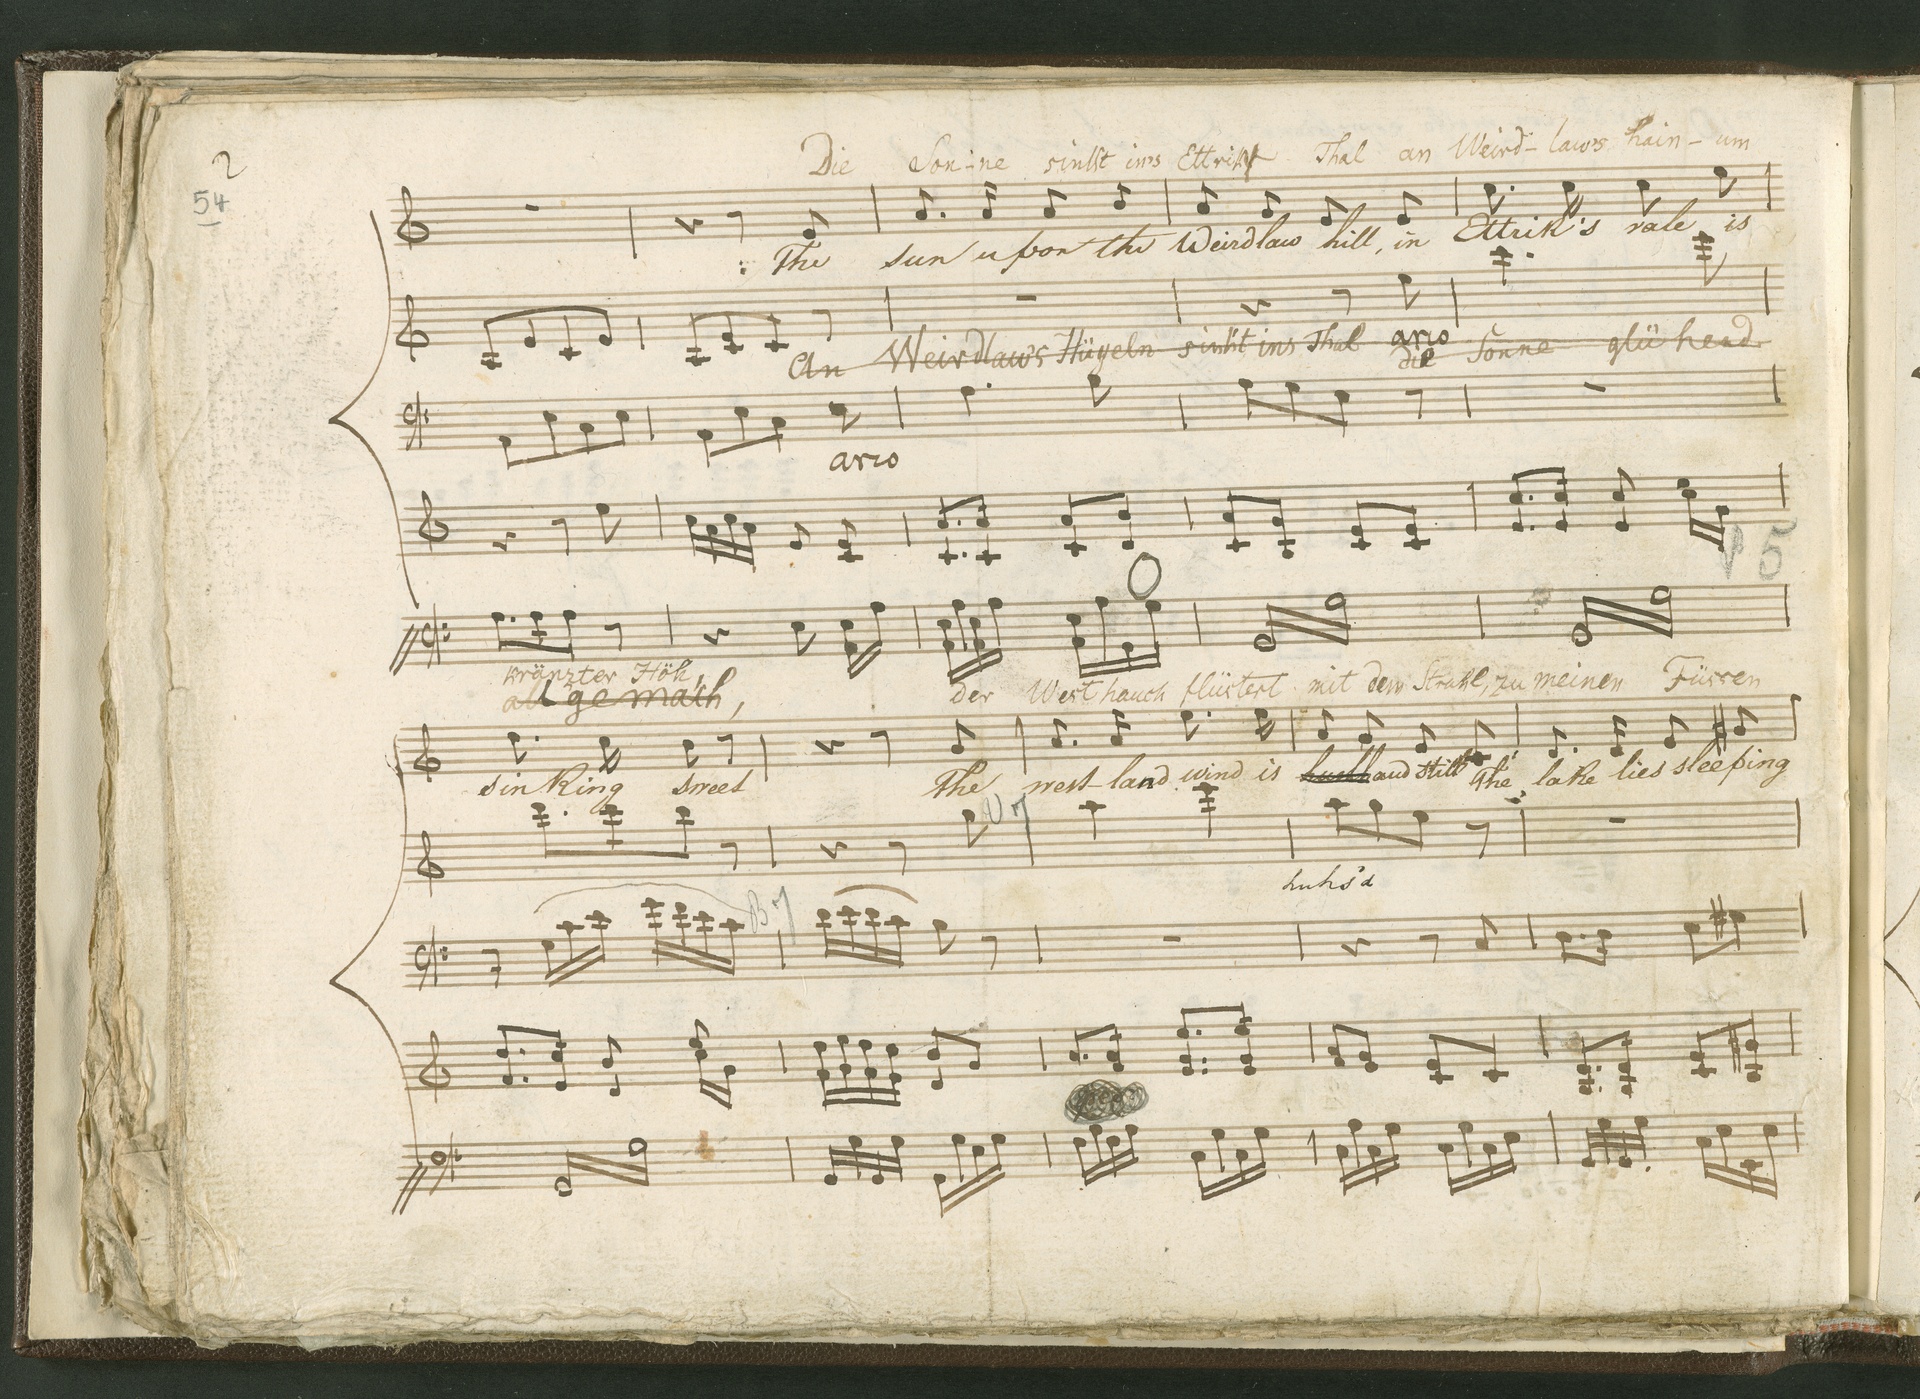 2
54
Die Son-ne sinkt in's Ettrik Thal an Weird-law's hain-um
The sun upon the Weirdlaw hill, in Ettrik's vale is
An Weirdlaw's Hügeln sinkt ins Thal die Sonne glühend
arco
arco
5
kränzter Höh,
allgemach, der Westhauch flüstert mit dem Strahl, zu meinen Füssen
sinking sweet The west-land wind is hush and still the lake lies sleeping
huhs'd